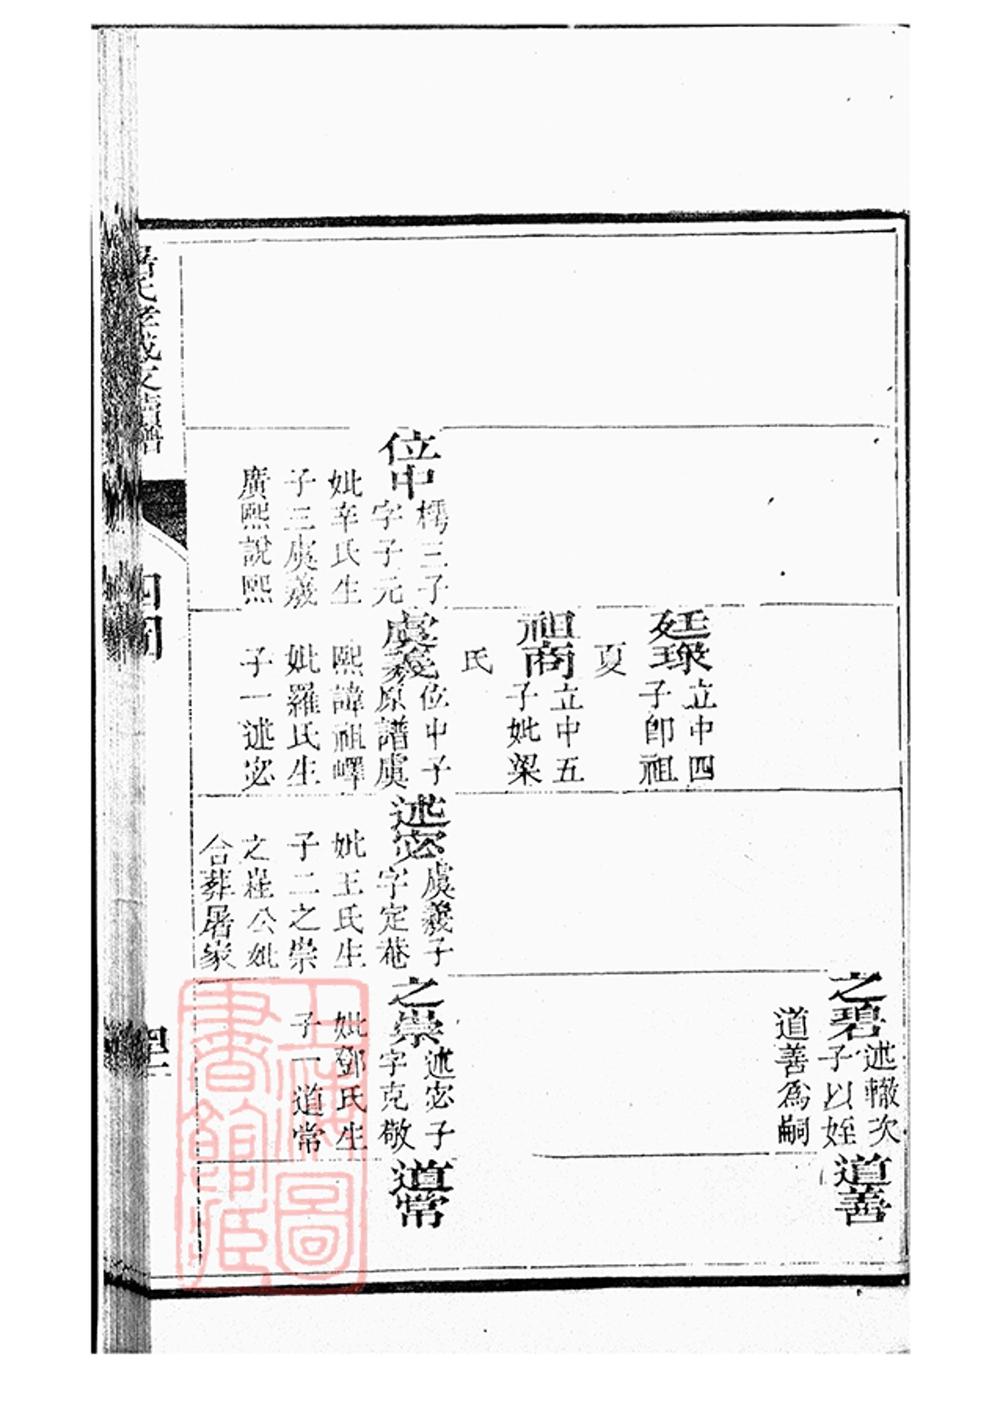 位中
樗三子
字子元
妣辛氏生
子三虞義
廣熙說熙
廷琭
立中四
子卽祖
夏
祖商
立中五
子妣梁
氏
虞義
位中子
原譜虞
熙諱祖嶧
妣羅氏生
子一述宓
述宓
虞義子
字定菴
妣王氏生
子二之崇
之公妣
合葬屠家
之碧
述轍次
子以姪
道善爲嗣
之崇
述宓子
字克敬
妣鄧氏生
子一道常
道善
道常
上海圖
書館藏